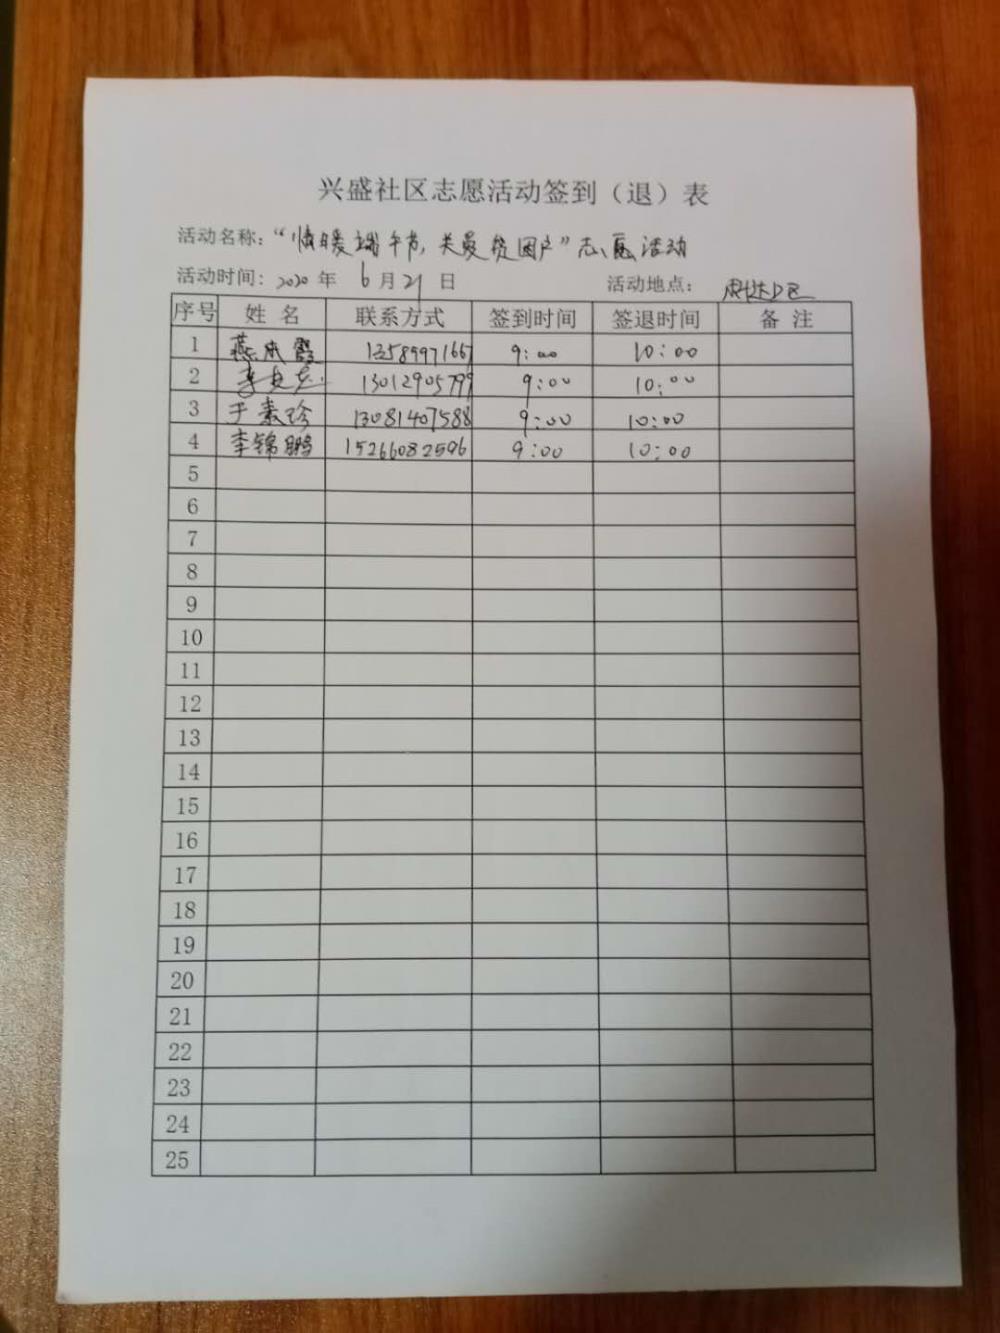 兴盛社区志愿活动签到（退）表
活动名称：“情暖端午节，关爱贫困户”志愿活动
活动时间：2020 年 6 月 21 日 活动地点：
序号 姓 名 联系方式 签到时间 签退时间 备 注
1 燕 霞 13589971667 9:00 10:00
2 李 13012905799 9:00 10:00
3 于素珍 13081407588 9:00 10:00
4 李锦鹏 15266082596 9:00 10:00
5
6
7
8
9
10
11
12
13
14
15
16
17
18
19
20
21
22
23
24
25